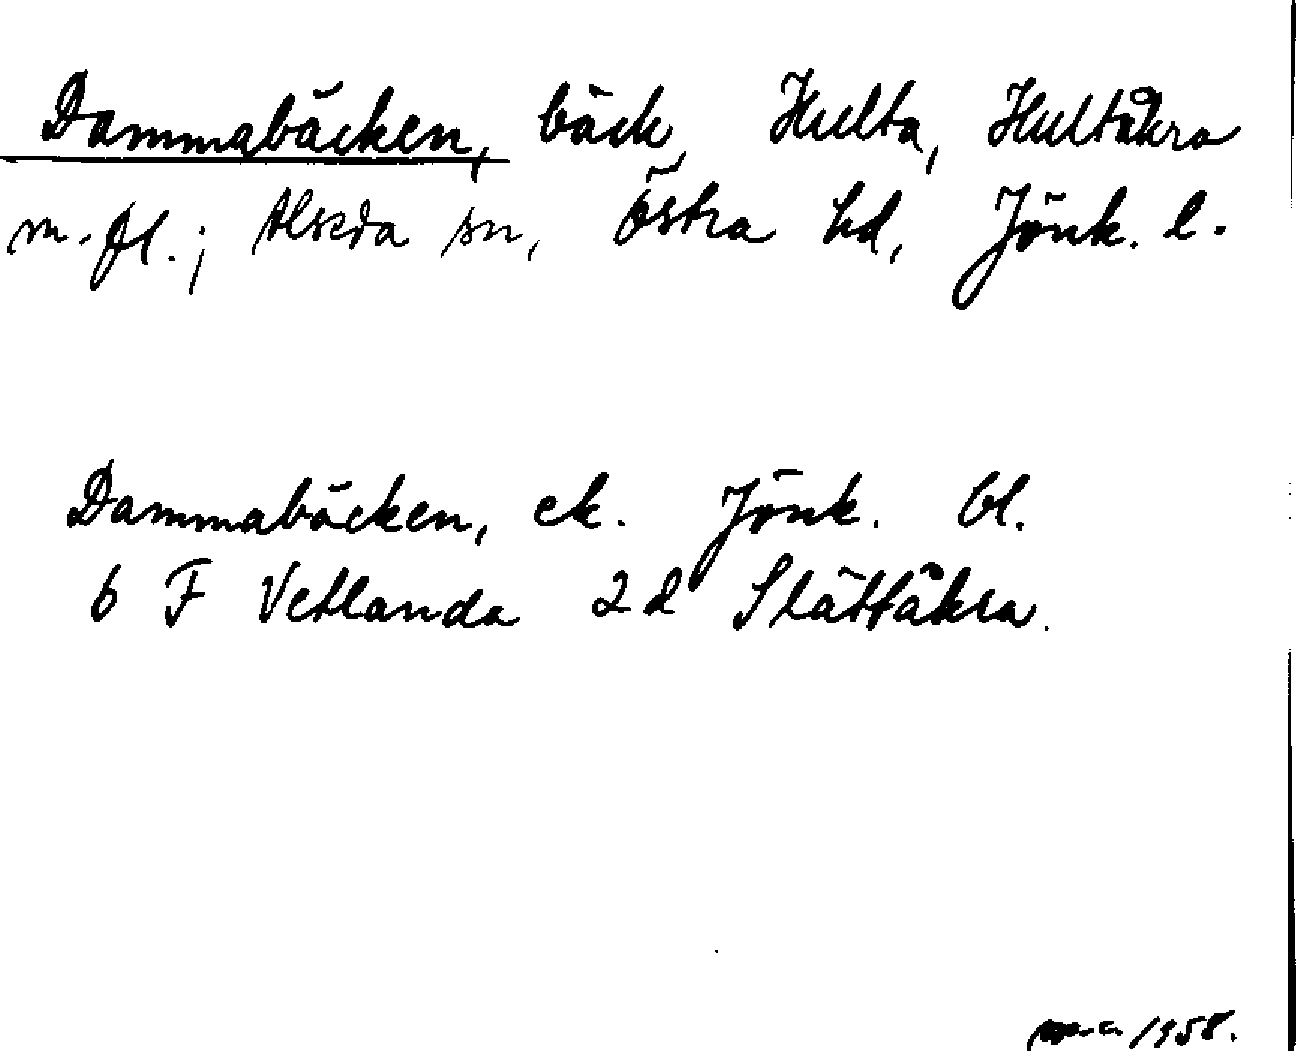 Dammabäcken, bäck, Hulta, Hultåkra
m. fl.; Alseda sn, Östra hd, Jönk. l.
Dammabäcken, ek. Jönk. bl.
6 F Vetlanda 2d Slättåkra.
1958.